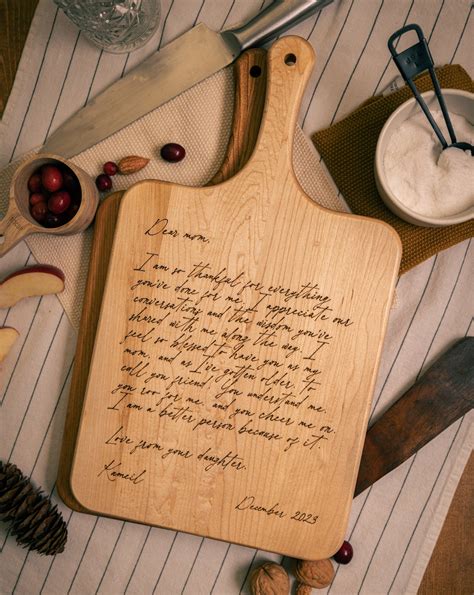 Dear mom,
I am so thankful for everything
you've done for me. I appreciate our
conversations and the wisdom you've
shared with me along the day. I
feel so blessed to have you as my
mom, and as I've gotten older, to
call you friend. You understand me,
you roo for me, and you cheer me on.
I am a better person because of it.
Love from your daughter,
Kameil
December 2023